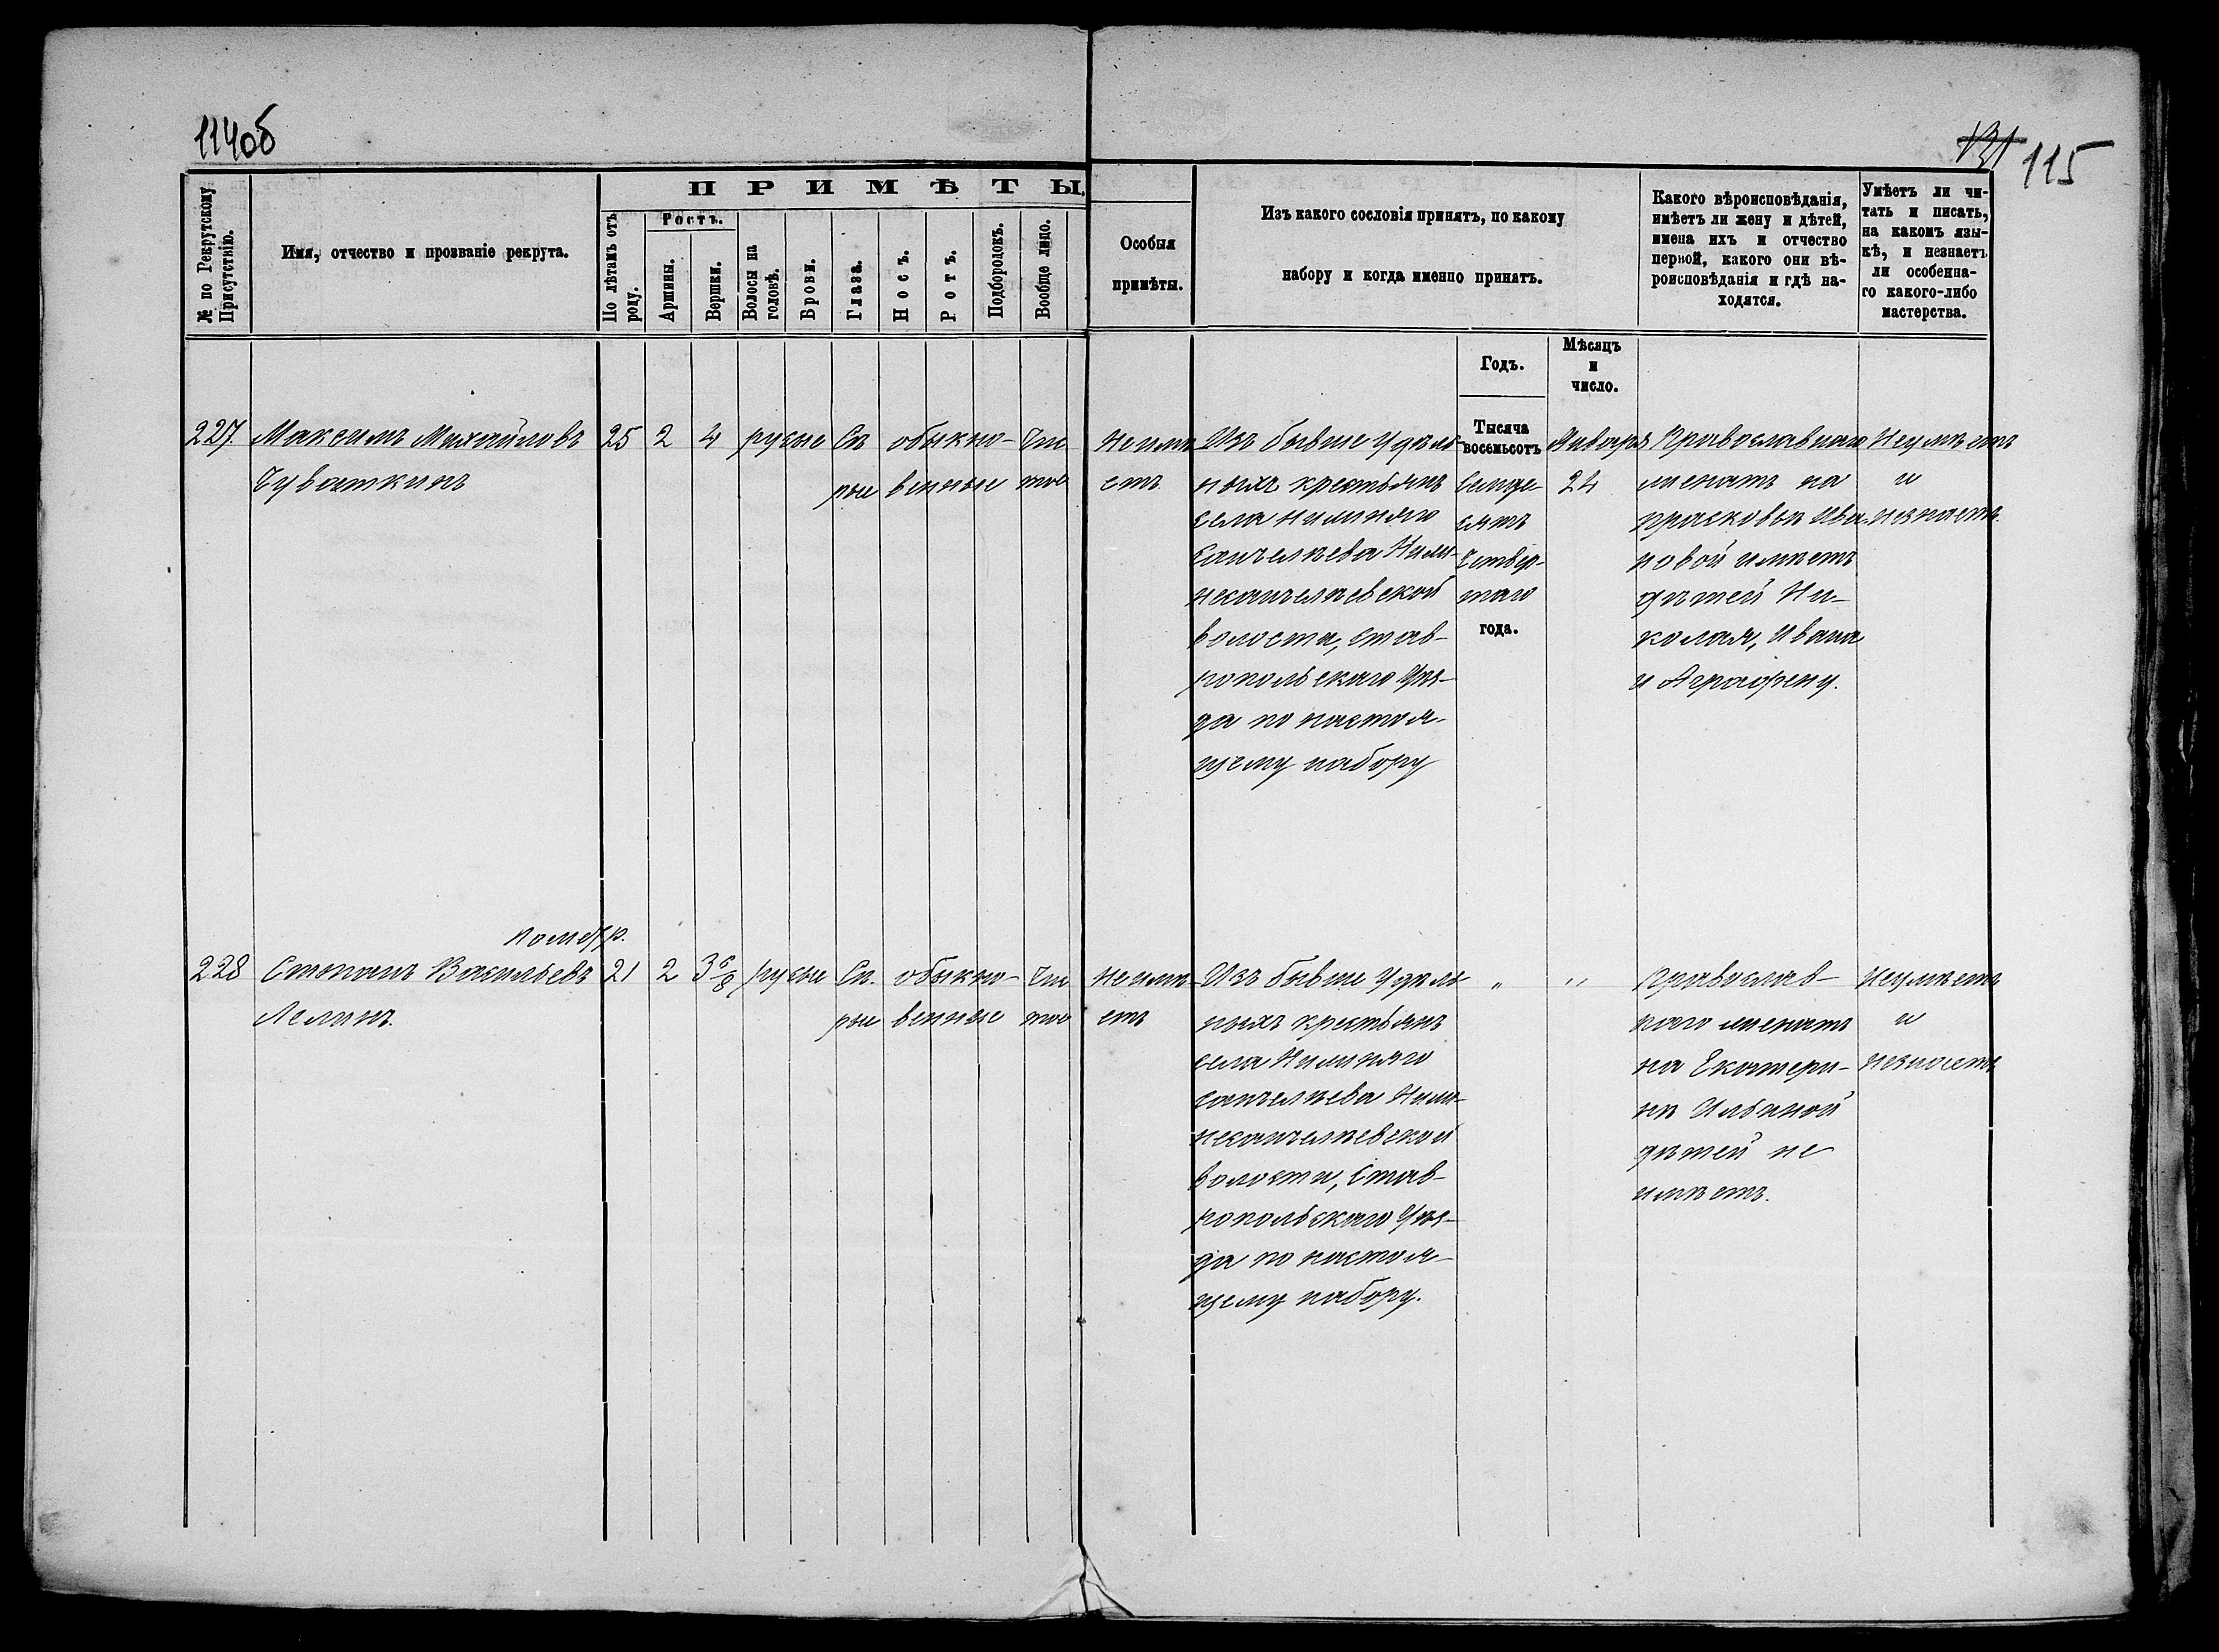 114об
131 115
ПРИМѢТЫ.
№ по Рекрутскому Присутствію.
Имя, отчество и прозваніе рекрута.
По лѣтамъ отъ роду.
Ростъ.
Аршины.
Вершки.
Волосы на головѣ.
Брови.
Глаза.
Носъ.
Ротъ.
Подбородокъ.
Вообще лицо.
Особыя
примѣты.
Изъ какого сословія принятъ, по какому
набору и когда именно принятъ.
Какого вѣроисповѣданія,
имѣетъ ли жену и дѣтей,
имена ихъ и отчество
первой, какого они вѣ-
роисповѣданія и гдѣ на-
ходятся.
Умѣетъ ли чи-
тать и писать,
на какомъ язы-
кѣ, и незнаетъ
ли особенна-
го какого-либо
мастерства.
Годъ.
Мѣсяцъ
и
число.
227
Максимъ Михайловъ
Чуваткинъ
25
2
4
русые
Сѣ
рые
обыкно-
венные
Чис
тое
Неимѣ
етъ
Изъ бывше Удѣль
ныхъ крестьянъ
села Нижняго
Санчелѣева Ниж-
несанчелѣевской
волости, Став-
ропольскаго Уѣз-
да по настоя-
щему набору
Тысяча
восемьсотъ
семьде
сятъ
Четвер-
таго
года.
Января
24
Православнаго
женатъ на
Прасковьѣ Ива-
новой имѣетъ
дѣтей Ни-
колая, Ивана
и Аграфену.
Неумѣетъ
и
незнаетъ.
228
Степанъ Васильевъ
Лелинъ.
21
2
3 6/8
русые
Сѣ.
рые
обыкно-
венные
Чис
тое
Неимѣ-
етъ
Изъ бывше Удѣль
ныхъ крестьянъ
села Нижняго
Санчелѣева Ниж-
несанчелѣевской
волости, Став-
ропольскаго Уѣз-
да по настоя-
щему набору.
"
"
Православ-
наго женатъ
на Екатери-
нѣ Ильиной
дѣтей не
имѣетъ.
Неумѣетъ
и
незнаетъ